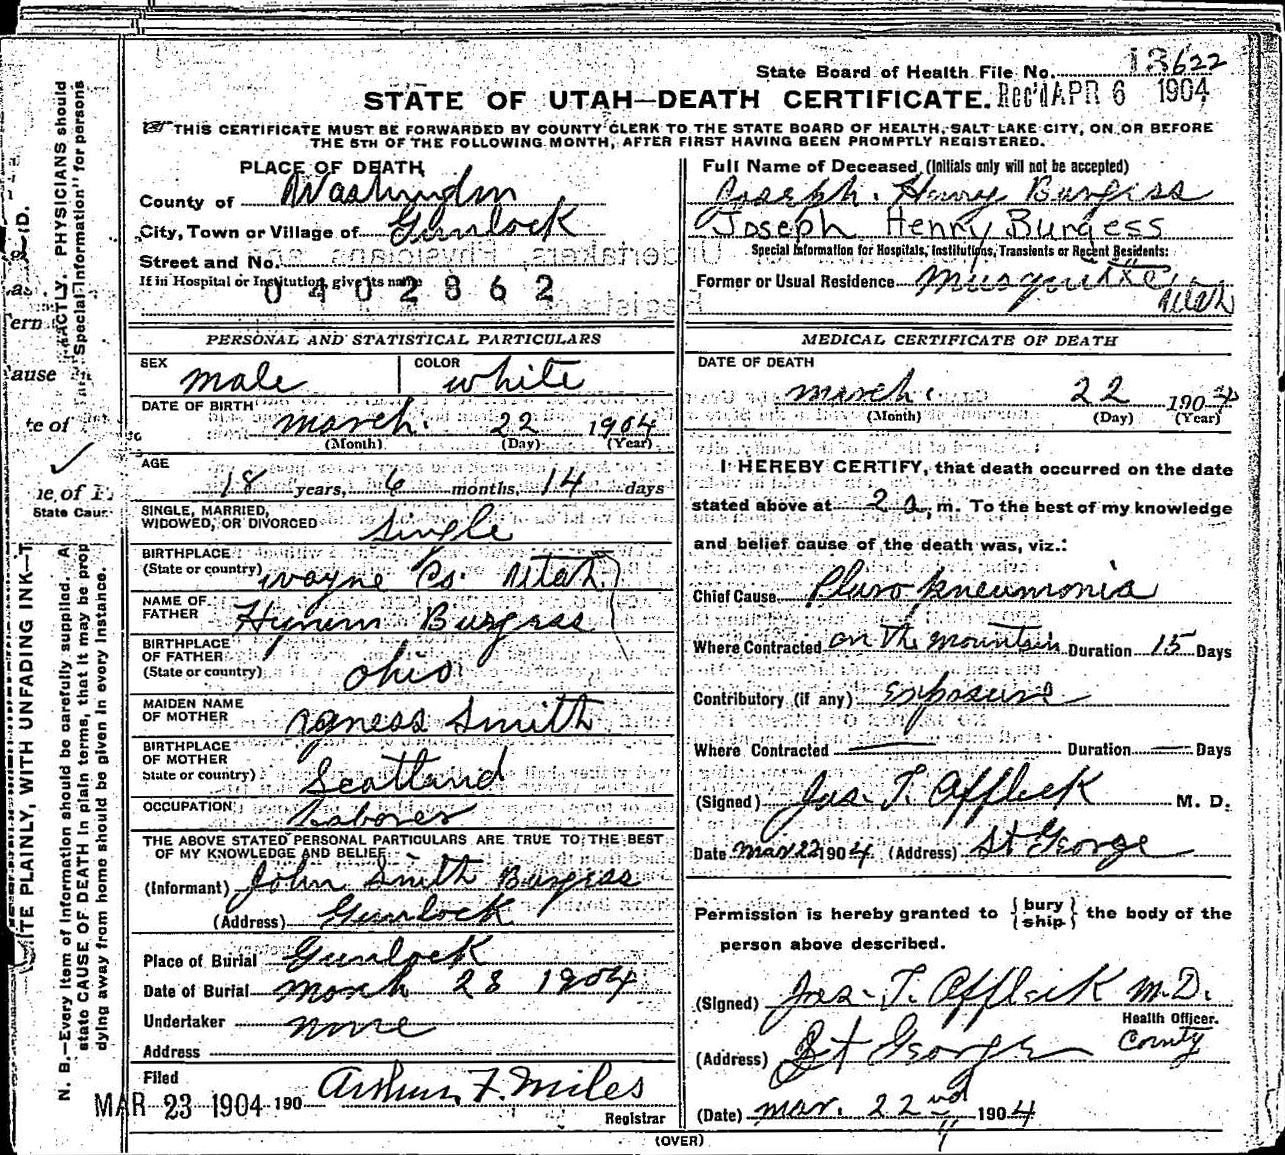 State Board of Health File No. 13622
STATE OF UTAH—DEATH CERTIFICATE. Rec'd APR 6 1904
THIS CERTIFICATE MUST BE FORWARDED BY COUNTY CLERK TO THE STATE BOARD OF HEALTH, SALT LAKE CITY, ON OR BEFORE
THE 5TH OF THE FOLLOWING MONTH, AFTER FIRST HAVING BEEN PROMPTLY REGISTERED.
PLACE OF DEATH
County of Washington
City, Town or Village of Gunlock
Street and No.
If in Hospital or Institution, give its name
0402862
Full Name of Deceased (Initials only will not be accepted)
Joseph. Henry Burgiss
Joseph Henry Burgess
Special Information for Hospitals, Institutions, Transients or Recent Residents:
Former or Usual Residence Musquitte,
Utah
PERSONAL AND STATISTICAL PARTICULARS
SEX male COLOR white
DATE OF BIRTH
march. 22 1904
(Month) (Day) (Year)
AGE
18 years, 6 months, 14 days
SINGLE, MARRIED,
WIDOWED, OR DIVORCED single
BIRTHPLACE
(State or country) wayne Co. Utah
NAME OF
FATHER Hyrum Burgess
BIRTHPLACE
OF FATHER
(State or country) ohio
MAIDEN NAME
OF MOTHER Agness Smith
BIRTHPLACE
OF MOTHER
State or country) Scotland
OCCUPATION Laborer
THE ABOVE STATED PERSONAL PARTICULARS ARE TRUE TO THE BEST
OF MY KNOWLEDGE AND BELIEF
(Informant) John Smith Burgess
(Address) Gunlock
Place of Burial Gunlock
Date of Burial march 23 1904
Undertaker none
Address
Filed
MAR 23 1904 190 Arthur F. Miles
Registrar
MEDICAL CERTIFICATE OF DEATH
DATE OF DEATH
march. 22 1904
(Month) (Day) (Year)
I HEREBY CERTIFY, that death occurred on the date
stated above at 2 a. m. To the best of my knowledge
and belief cause of the death was, viz.:
Chief Cause Pluro pneumonia
Where Contracted on The mountain Duration 15 Days
Contributory (if any) exposure
Where Contracted Duration Days
(Signed) Jas. T. Affleck M. D.
Date Mar 22 1904 (Address) St George
Permission is hereby granted to { bury
ship } the body of the
person above described.
(Signed) Jas. T. Affleck M.D.
Health Officer.
(Address) St George County
(Date) mar. 22nd 1904
(OVER)
N. B.—Every item of information should be carefully supplied. A
state CAUSE OF DEATH in plain terms, that it may be prop
dying away from home should be given in every instance.
EXACTLY. PHYSICIANS should
"Special Information" for persons
ITE PLAINLY, WITH UNFADING INK—T
ern
ause
te of
State Caus